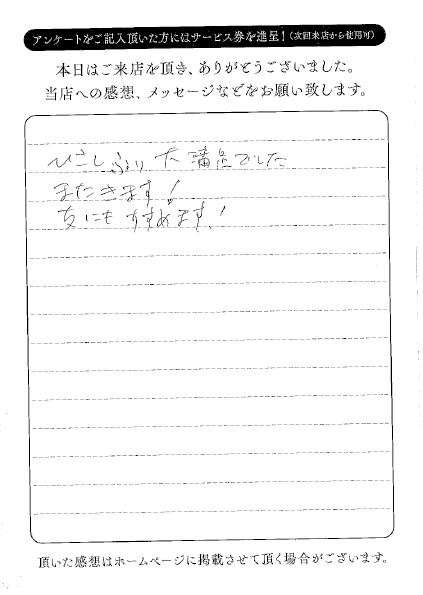 アンケートをご記入頂いた方にはサービス券を進呈！（次回来店から使用可）
本日はご来店を頂き、ありがとうございました。
当店への感想、メッセージなどをお願い致します。
ひさしぶり大満足でした
またきます！
友にもすすめます！
頂いた感想はホームページに掲載させて頂く場合がございます。